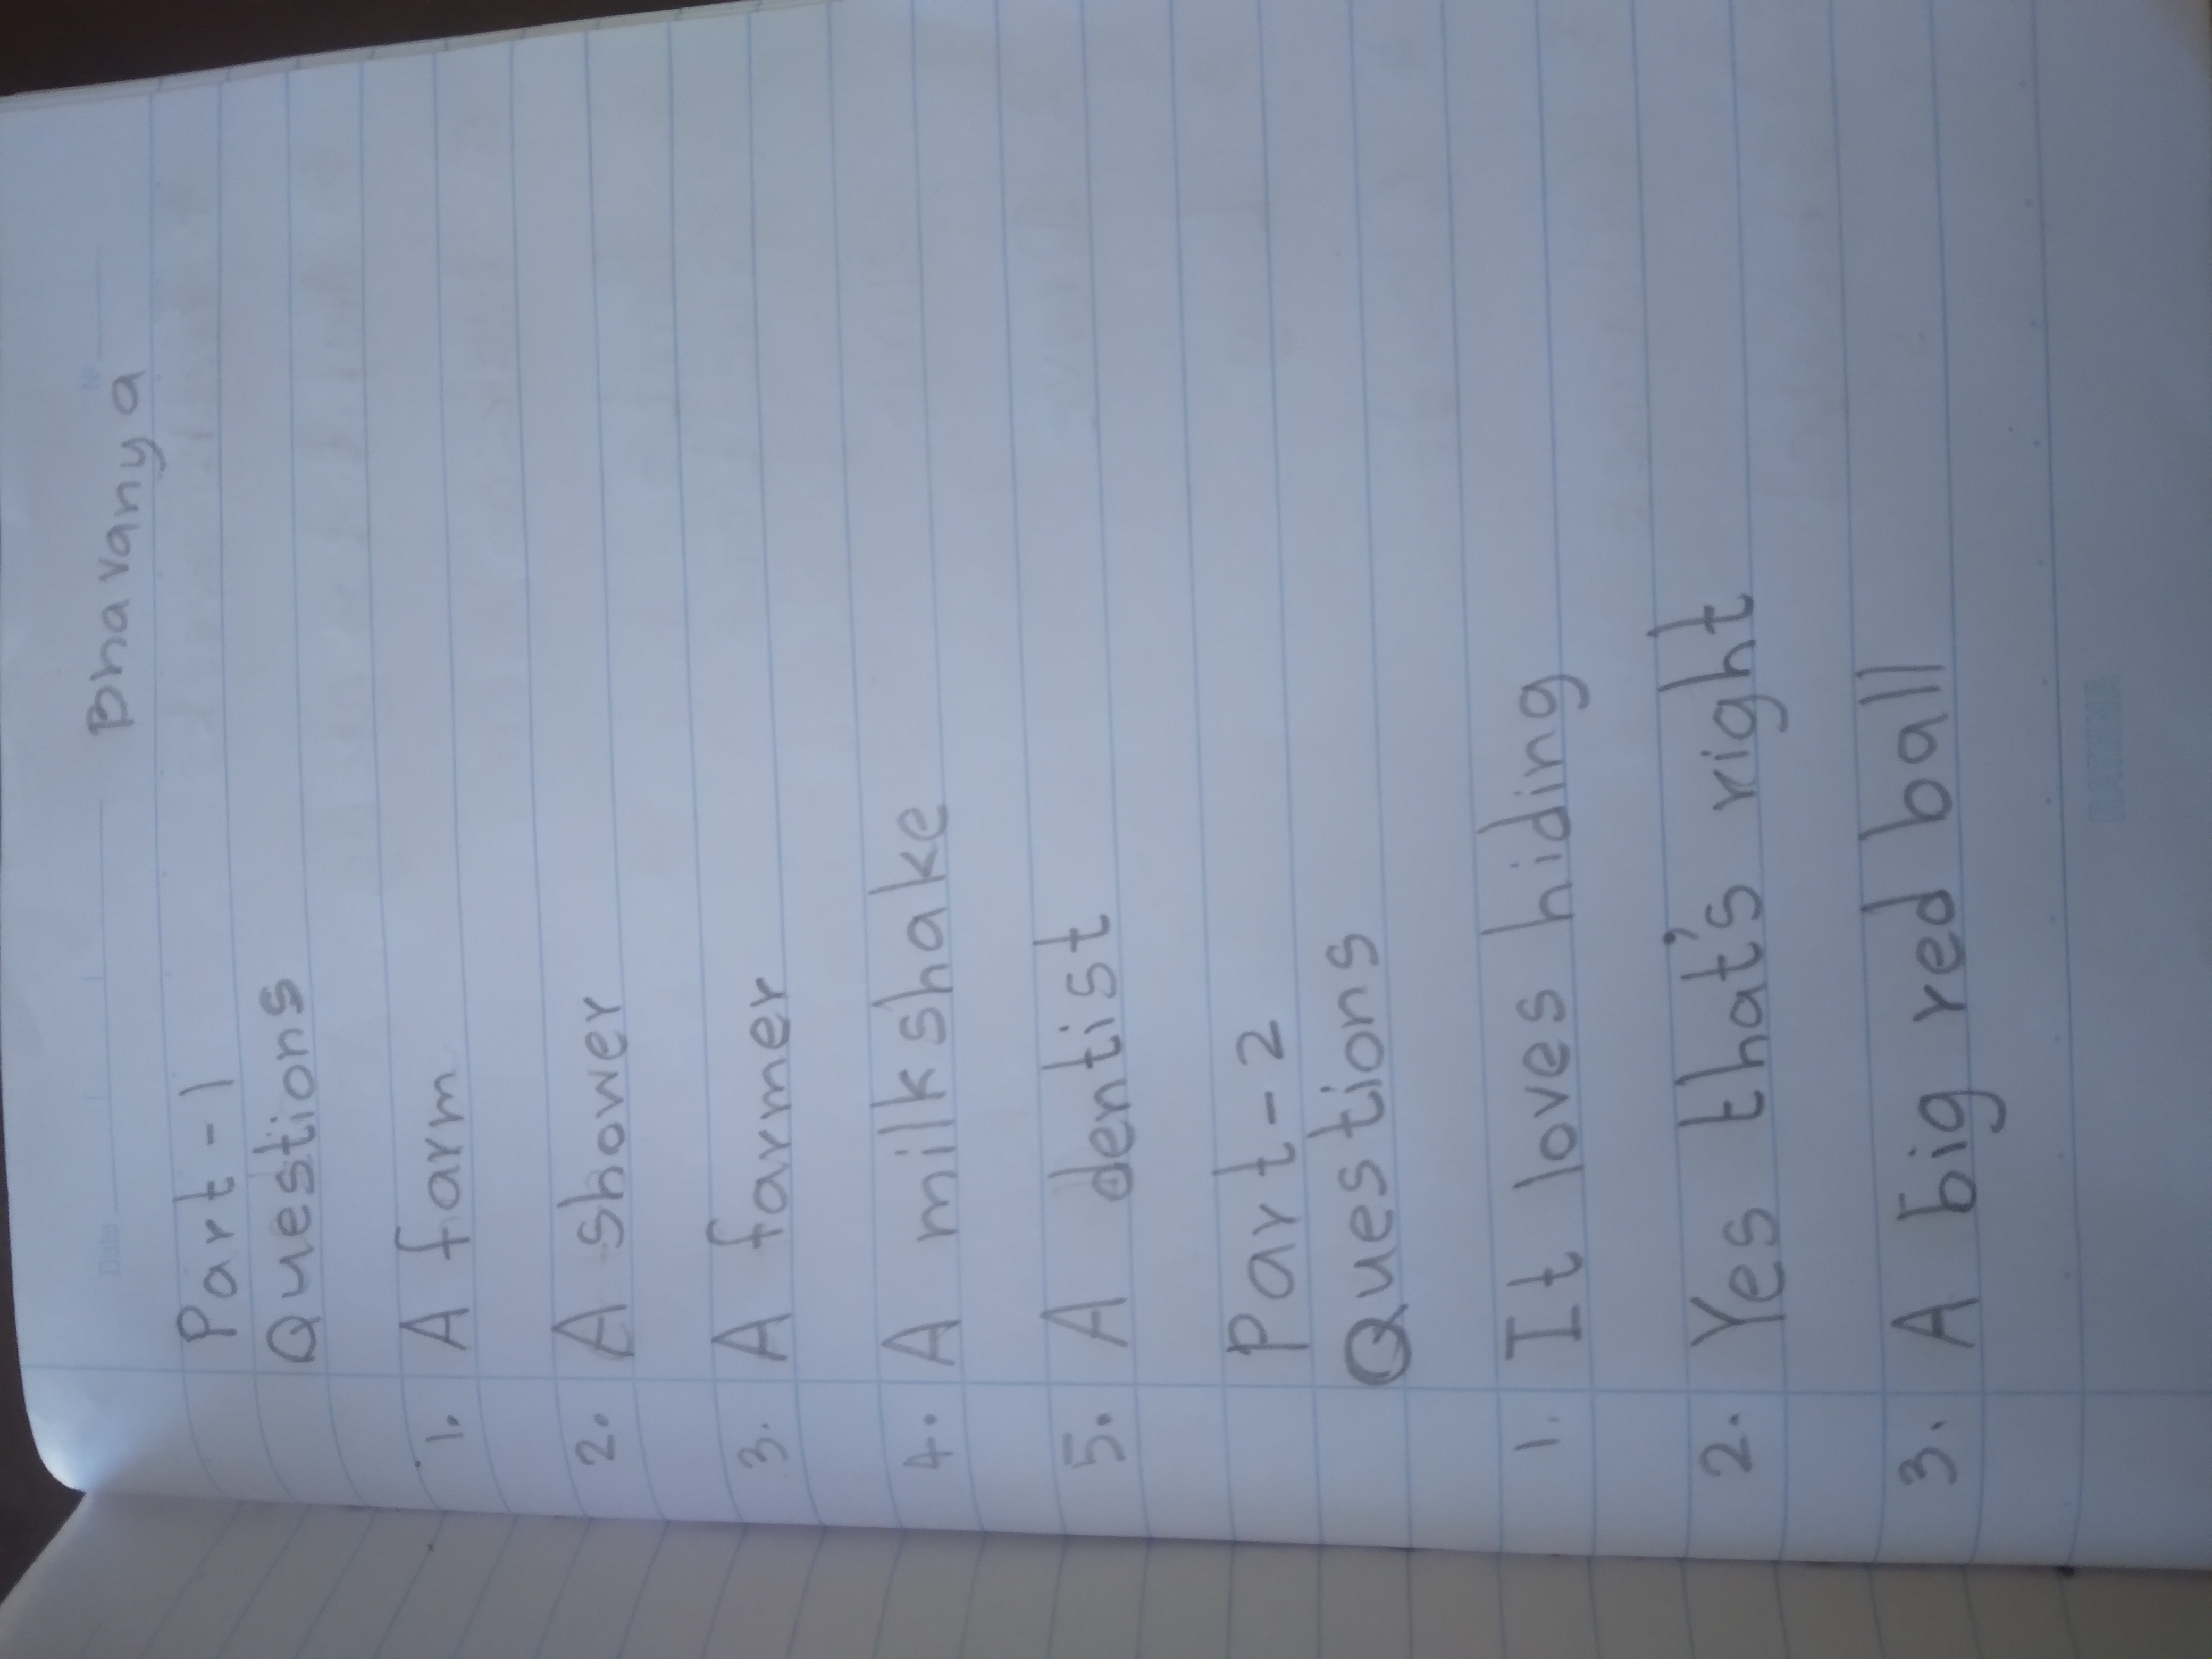 Bhavanya
Date
Nº
Part-1
Questions
1. A farm
2. A shower
3. A farmer
4. A milkshake
5. A dentist
Part-2
Questions
1. It loves hiding
2. Yes that's right
3. A big red ball